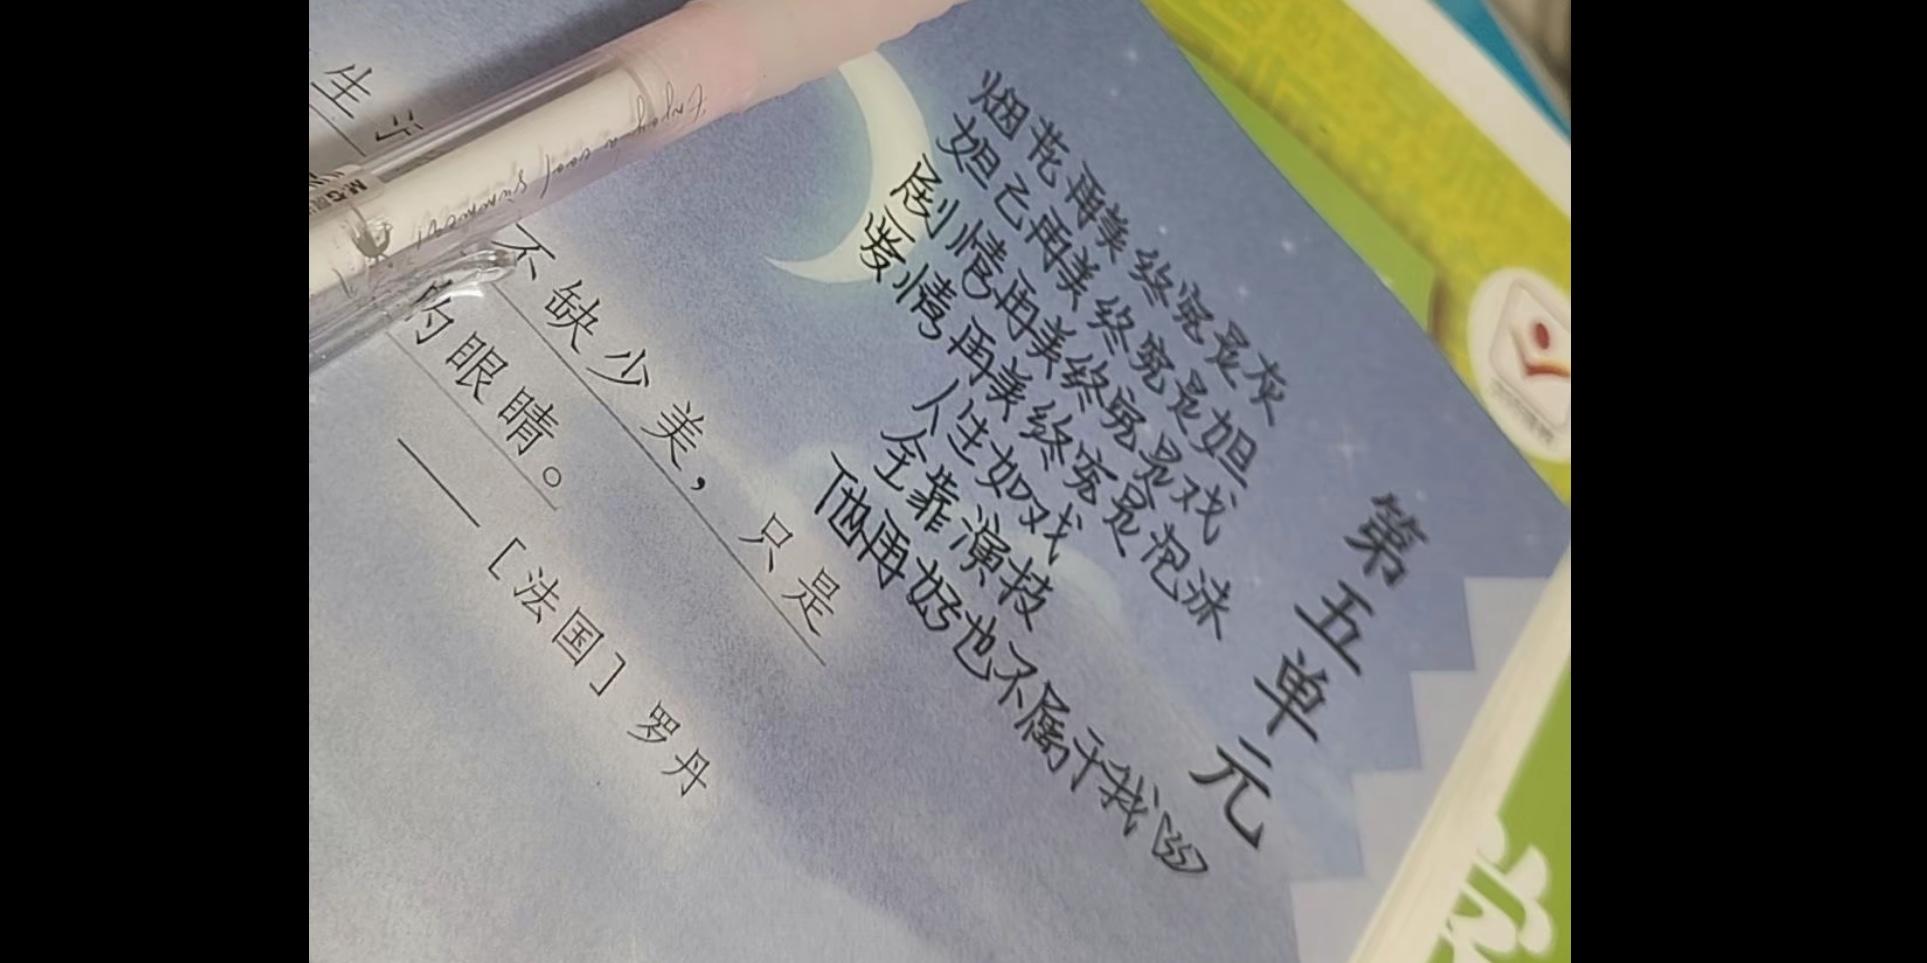 烟花再美终究是灰
妲己再美终究是妲
剧情再美终究是戏
爱情再美终究是泡沫
人生如戏
全靠演技
他再好也不属于我
第五单元
生
不缺少美，只是
的眼睛。
——［法国］罗丹
Enjoy a cool summer
M&G